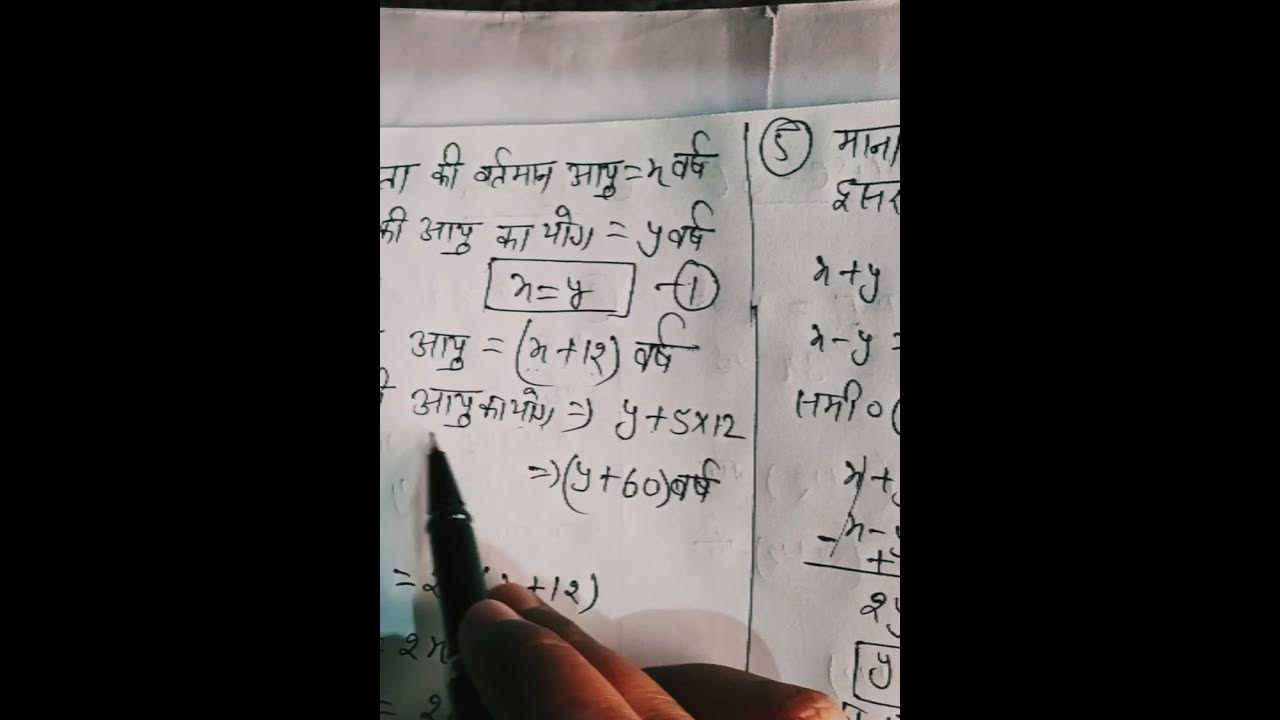 ता की वर्तमान आयु = x वर्ष
की आयु का योग = y वर्ष
x = y -①
आयु = (x + 12) वर्ष
आयु का योग ⇒ y + 5 × 12
⇒ (y + 60) वर्ष
+ 12)
= 2x
= 2
⑤ माना
x + y
x - y =
समी० (
x +
- x -
+
2y
y